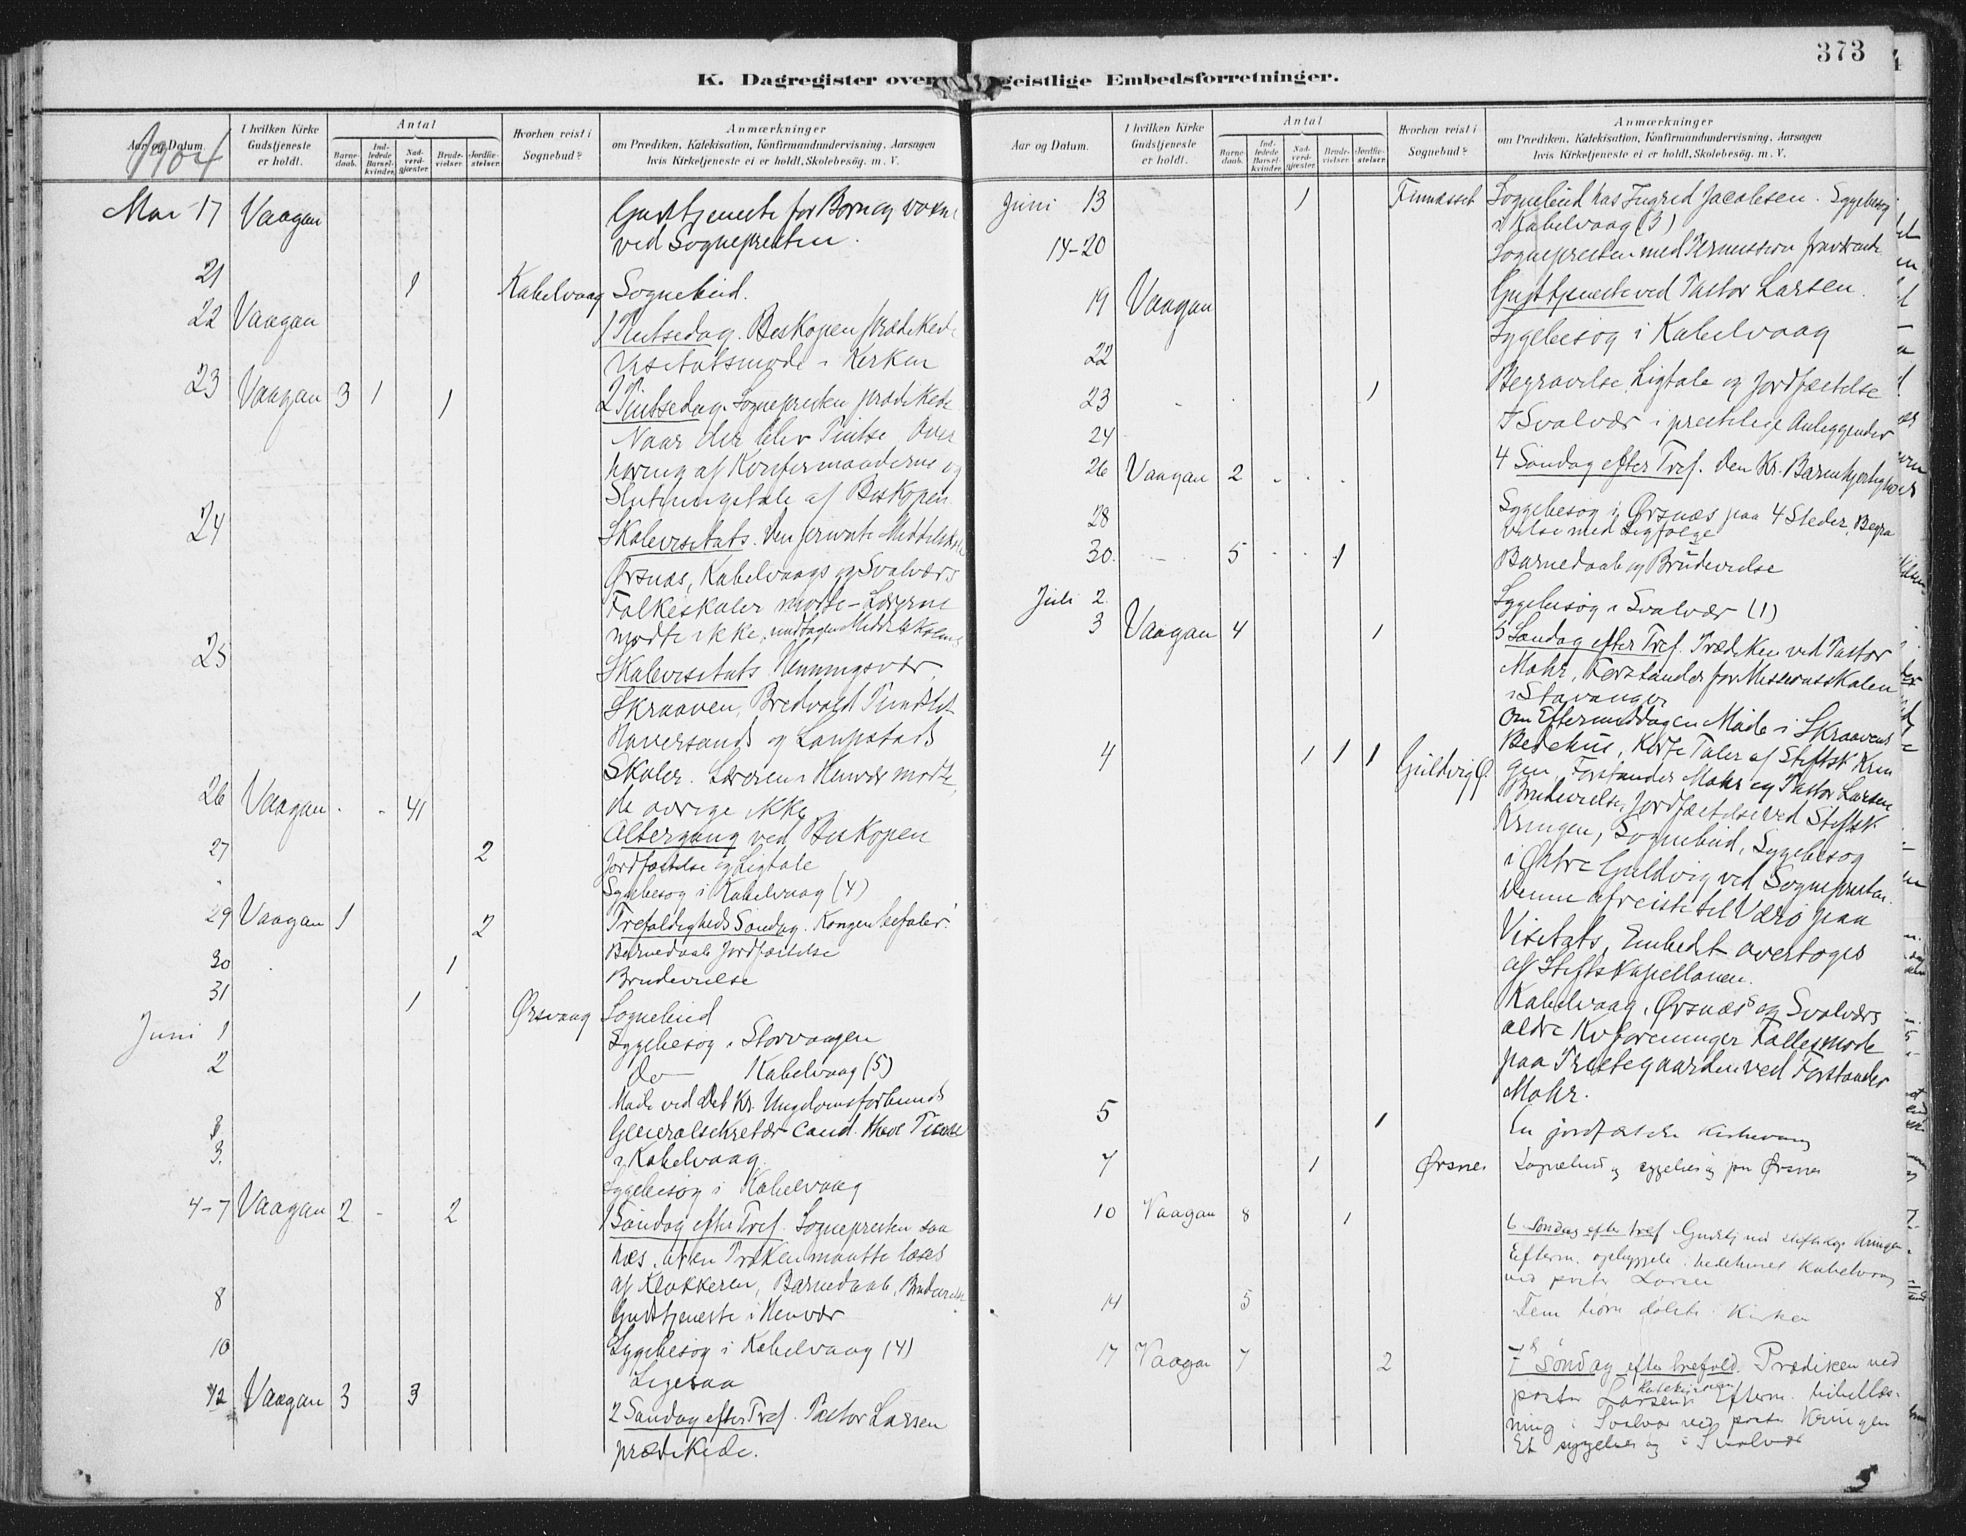 373
K. Dagregister over geistlige Embedsforretninger.
Aar og Datum.
I hvilken Kirke Gudstjeneste er holdt.
Antal
Barnedaab.
Indledede Barselkvinder.
Nadverdgjæster.
Brudevielser.
Jordfæstelser.
Hvorhen reist i Sognebud?
Anmærkninger
om Prædiken, Katekisation, Konfirmandundervisning, Aarsagen
hvis Kirketjeneste ei er holdt, Skolebesög. m. V.
1904
Mai 17 Vaagan Gudstjeneste for Børn og voxne
ved Sognepresten.
21 1 Kabelvaag Sognebud.
22 Vaagan 1 Pintsedag. Biskopen prædikede
Visitatsmøde i Kirken
23 Vaagan 3 1 1 2 Pintsedag. Sognepresten prædikede
Naar der blev Pintse, Over
høring af Konfirmanderne og
Slutningstale af Biskopen
24 Skolevisitats. Den private Middelskole
Ørsnæs, Kabelvaags og Svolværs
Folkeskoler mødte - Lærerne
mødte ikke, undtagen Middelskolens
25 Skolevisitats. Henningsvær,
Skraaven, Bredvold
og Laupstads
Skoler. Læreren i Henvær mødte,
de øvrige ikke
26 Vaagan . - 41 Altergang ved Biskopen
27 2 Jordfæstelse og Ligtale
Sygebesøg i Kabelvaag (4)
29 Vaagan 1 2 Trefoldigheds Søndag. Kongen befaler.
Barnedaab Jordfæstelse
30 1 Brudevielse
31 1 Ørsvaag Sognebud
Juni 1 Sygebesøg i Storvaagen
2 Do Kabelvaag (5)
Møde ved Det Kr. Ungdomsforbunds
3 Generalsekretær Cand.
3. i Kabelvaag
Sygebesøg i Kabelvaag
4-7 Vaagan 2 - 2 1 Søndag efter Tref. Sognepresten saa
hæs, at en Præken maatte læses
af Klokkeren, Barnedaab, Brudevielse
8 Gudstjeneste i Henvær
10 Sygebesøg i Kabelvaag (4)
Ligesaa
12 Vaagan 3 3 2 Søndag efter Tref. Pastor Larsen
prædikede.
Aar og Datum.
I hvilken Kirke Gudstjeneste er holdt.
Antal
Barnedaab.
Indledede Barselkvinder.
Nadverdgjæster.
Brudevielser.
Jordfæstelser.
Hvorhen reist i Sognebud?
Anmærkninger
om Prædiken, Katekisation, Konfirmandundervisning, Aarsagen
hvis Kirketjeneste ei er holdt, Skolebesög. m. V.
Juni 13 1 Finnæsset Sognebud hos Ingrid Jacobsen. Sygebesøg
i Kabelvaag (3)
14-20 Sognepresten med Permission fraværende
19 Vaagan Gudstjeneste ved Pastor Larsen.
22 Sygebesøg i Kabelvaag
23 1 Begravelse Ligtale og Jordfæstelse
24 I Svolvær i prestelige Anliggender
26 Vaagan 2 4 Søndag efter Tref. Den Kr. Barmhjertighed
28 Sygebesøg i Ørsnæs paa 4 Steder, Begra
velse med Ligfølge
30. 5 1 Barnedaab og Brudevielse
Juli 2. Sygebesøg i Svolvær (1)
3 Vaagan 4 1 5 Søndag efter Tref. Prædiken ved Pastor
Mohr, Forstander for Missionsskolen
i Stavanger
Om Eftermiddagen Møde i Skraavens
4 1 1 1 Guldvig Ø. Bedehus, Korte Taler af Stiftsk Krin
gen, Forstander Mohr og Pastor Larsen
Brudevielse, Jordfæstelse ved Stiftsk
Kringen, Sognebud, Sygebesøg
i Østre Guldvig ved Sognepresten.
Denne afreiste til Værø paa
Visitats, Embedet overtoges
af Stiftskapellanen.
Kabelvaag, Ørsnæs og Svolværs
ældre Kvforeninger Fællesmøde
paa Prestegaarden ved Forstander
Mohr.
5 1 En jordfæstelse Kabelvaag
7 1 Ørsnes Sognebud og sygebesøg paa Ørsnes
10 Vaagan 8 1 6 Søndag efter tref Gudstj ved stiftskap. Kringen
Efterm. opbyggele. bedehuset Kabelvaag
ved pastor Larsen
14 5 Fem børn døbte i Kirken
17 Vaagan 7 2 7 Søndag efter trefold. Prædiken ved
pastor Larsen Katekisation Efterm. bibellæs-
ning i Svolvær ved pastor Kringen
Et sygebesøg i Svolvær